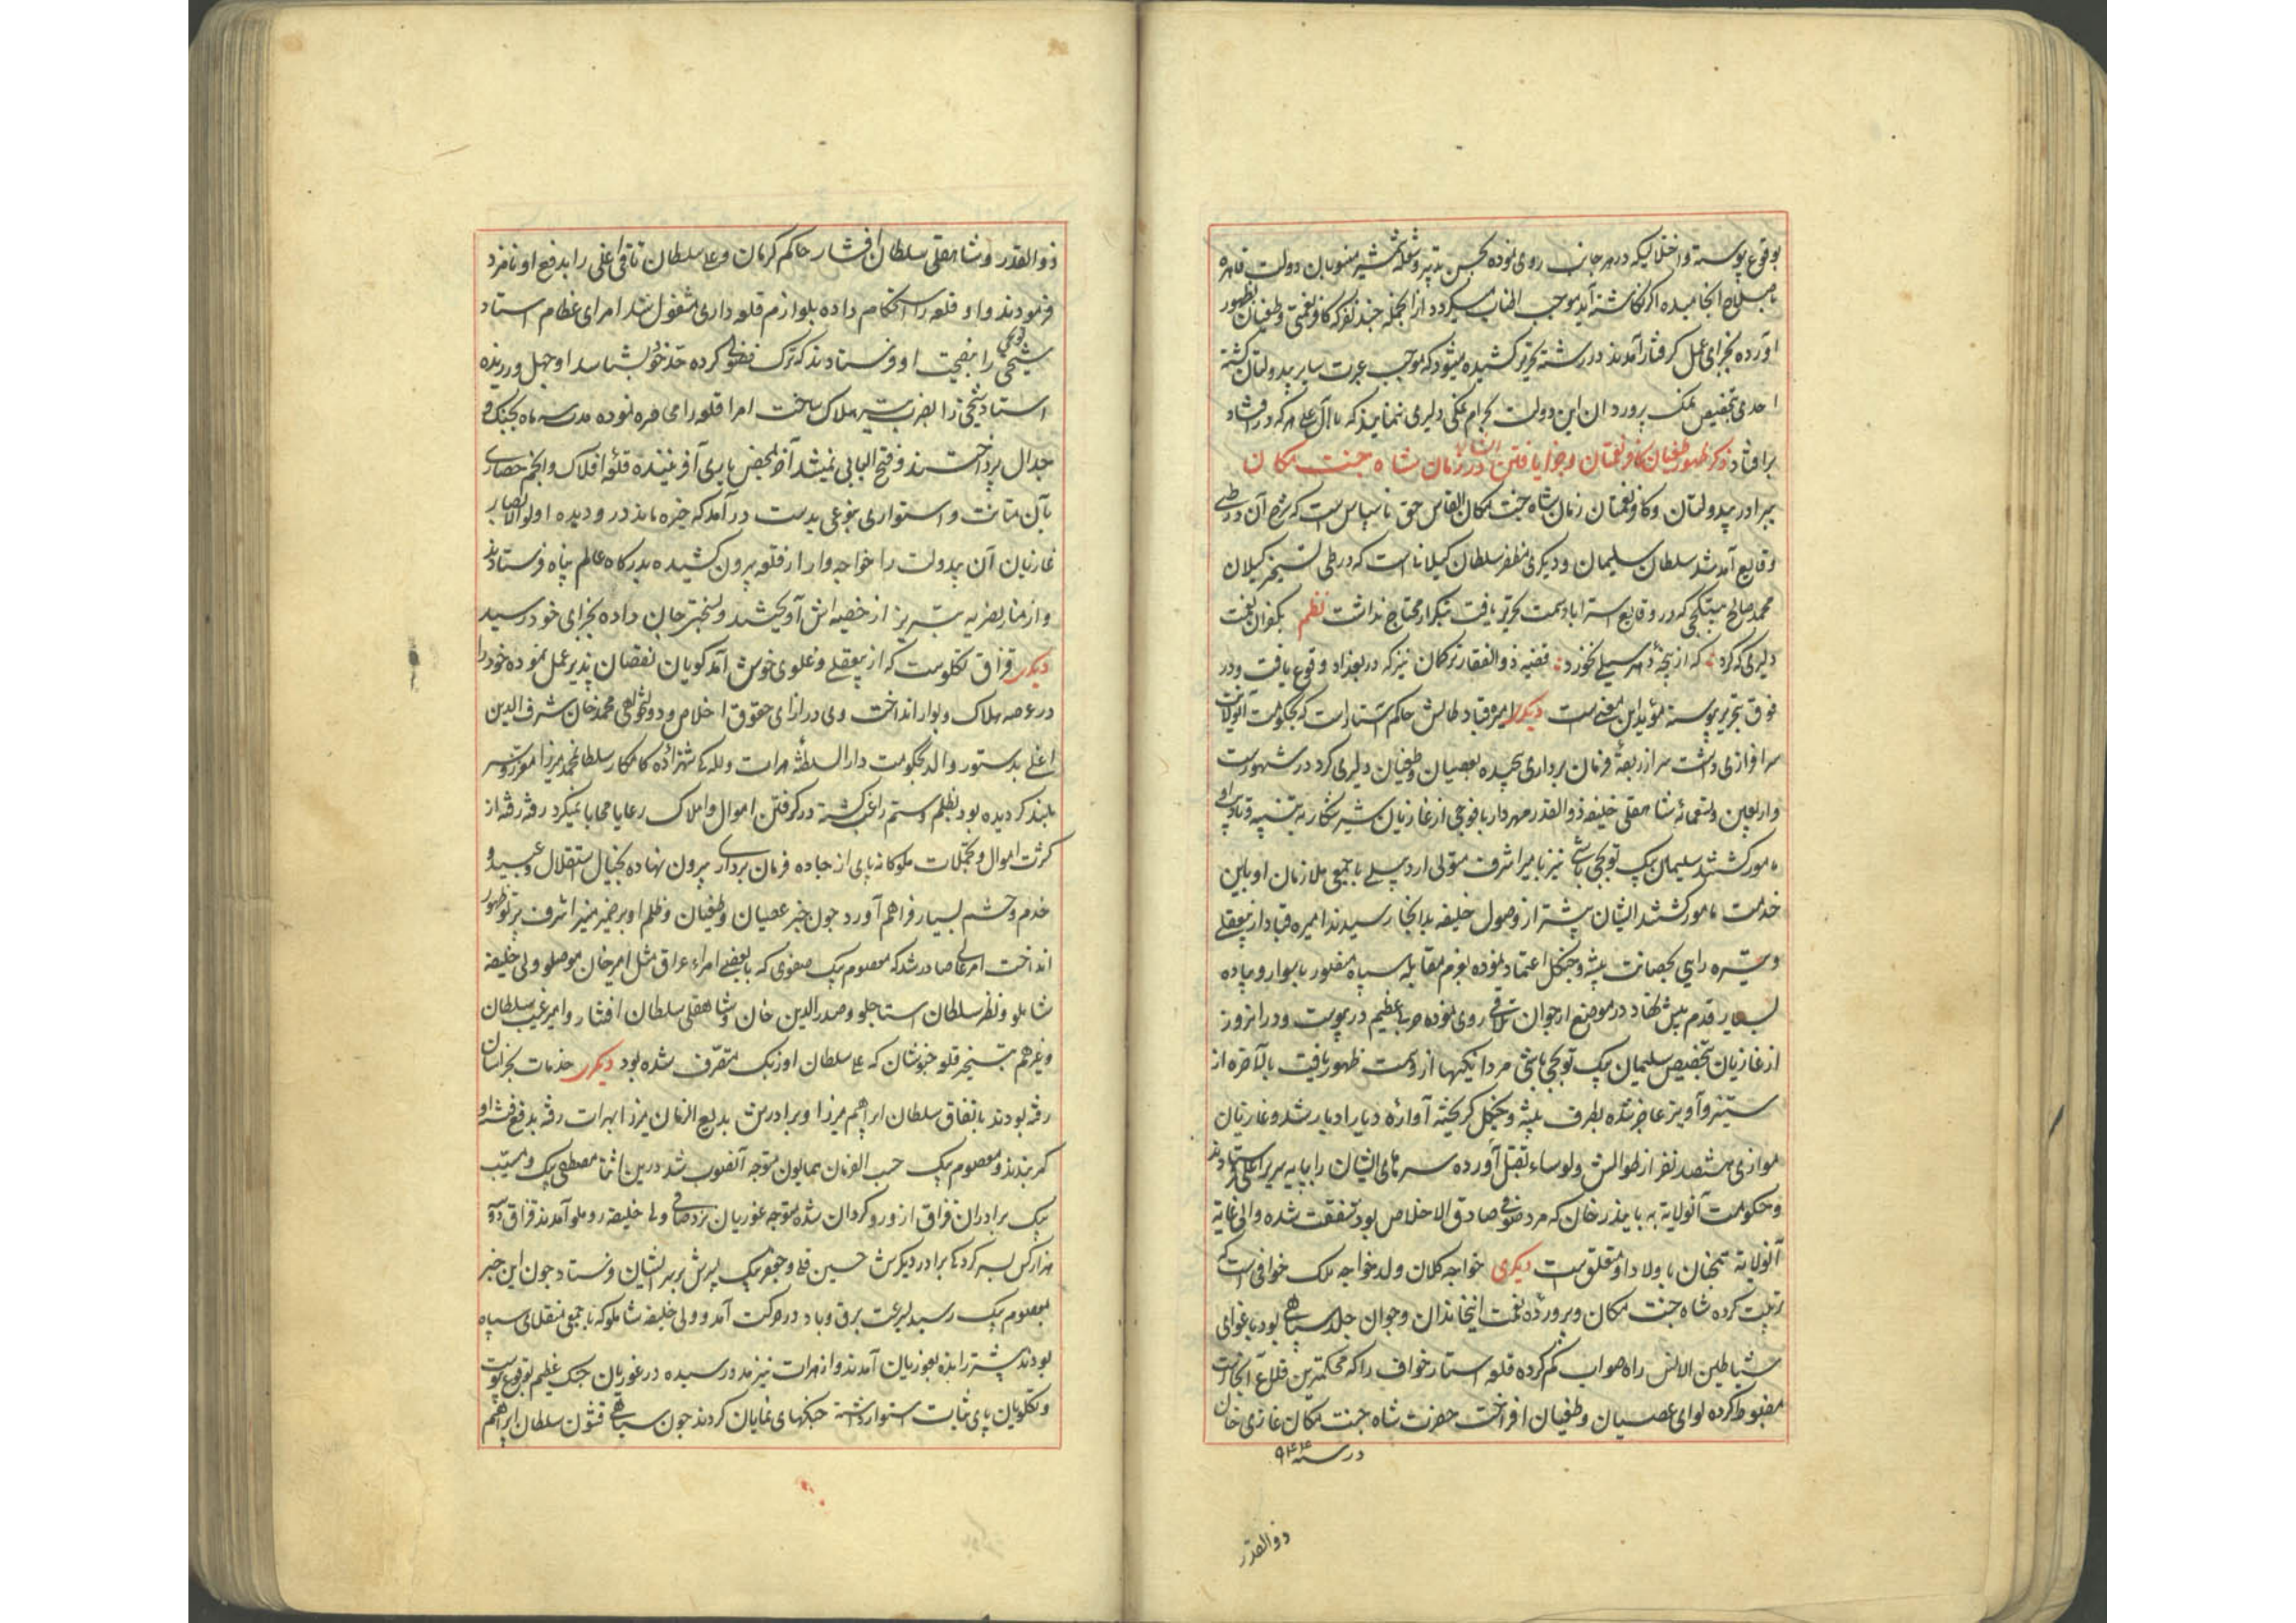 بوقوع پیوسته و اختلالیکه در هر جانب روی نموده بحسن تدبیر و شعله شمشیر منسوبان دولت قاهره
باصلاح انجامیده اگر نگاشته آید موجب اطناب میگردد از آنجمله چند نفر که کافر نعمتی و طغیان بظهور
آورده بجزای عمل گرفتار آمدند در رشته تحریر کشیده میشود که موجب عبرت سایر بیدولتان گشته
احدی بتخصیص نمک پرورد ان این دولت بحرام نمکی دلیری ننمایند که با آل علی هر که در افتاد
بر افتاد ذکر ظهور طغیان کافر نعمتان و جزا یافتن ایشان در زمان شاه جنت مکان
سرادر بیدولتان و کافر نعمتان زمان شاه جنت مکان القاس حق ناسپاس است که شرح آن در طی
وقایع آمد شد سلطان سلیمان و دیگری مظفر سلطان گیلانست که در طی تسخیر گیلان
محمد صالح بتکچی که در وقایع استراباد سمت تحریر یافت بتکرار محتاج نداشت نظم بکفران نعمت
دلیری که کرد که از پنجه دهر سیلی نخورد قضیه ذوالفقار ترکمان نیز که در بغداد وقوع یافت و در
فوق بتحریر پیوسته مؤید این معنی است دیگر امیره قباد طالش حاکم آستاراست که بحکومت آنولایت
سرافرازی داشت سر از ربقه فرمان برداری پیچیده بعصیان و طغیان دلیری کرد در شهور ست
و اربعین و تسعمائه شاهقلی خلیفه ذوالقدر مهردار با فوجی از غازیان شیر شکار به تنبیه قباد بی‌راه
مامور گشتند سلیمان بیک توپچی باشی نیز با میر اشرف متولی اردبیل با جمعی ملازمان او باین
خدمت مامور گشتند ایشان پیشتر از وصول خلیفه بدانجا رسیدند امیره قباد از بیعقلی
و تیره رایی بحصانت بیشه و جنگل اعتماد نموده بعزم مقابله سپاه منصور با سوار و پیاده
بسیار قدم پیش نهاد در موضع ارجوان تلاقی روی نموده حربی عظیم در پیوست و در انروز
از غازیان بتخصیص سلیمان بیک توپچی باشی مردانگیها از دست ظهور یافت بالآخره از
ستیز و آویز عاجز شده بطرف بیشه و جنگل گریخته آواره دیار ادبار شد و غازیان
موازی هشتصد نفر از طوالش ولوساء بقتل آورده سر های ایشان را بپایه سریر اعلی فرستادند
و حکومت آنولایة به بایندر خان که مرد صوفی صادق الاخلاص بود متفقت شده و الی غایة
آنولایة همچنان باولاد او متعلق است دیگری خواجه کلان ولد خواجه ملک خوافی است که
تربیت کرده شاه جنت مکان و پرورده نعمت اینخاندان و جوان جلد سپاهی بود باغوای
شیاطین الانس راه صواب گم کرده قلعه استار خواف را که محکمترین قلاع آنجاست
مضبوط کرده لوای عصیان و طغیان افراخت حضرت شاه جنت مکان غازی خان
در سنه ۹۴۴
ذوالقدر
ذوالقدر و شاهقلی سلطان افشار حاکم کرمان و علی سلطان تاتی اغلی را بدفع او نامزد
فرمودند و او قلعه را استحکام داده بلوازم قلعه داری مشغول شد امرای عظام استاد
شیخی توپچی را بنصیحت او فرستادند که ترک فضولی کرده حد خود بشناسد او جهل ورزیده
استاد شیخی را بضرب تیر هلاک ساخت امرا قلعه را محاصره نموده مدت سه ماه بجنگ و
جدال پرداختند و فتح الباب نمیشد آخر بمحض یاری آفریننده قلعه افلاک و انجم حصاری
بآن متانت و استواری بنوعی بدست در آمد که خیره ماند در و دیده اولو الابصار
غازیان آن بیدولت را خواجه وار از قلعه بیرون کشیده بدرگاه عالم پناه فرستادند
و از منار نصریه تبریز از خصیه اش آویختند و بسختی جان داده بجزای خود رسید
دیگر قزاق تکلوست که از بیعقلی و غلوی خوش آمد گویان نقصان پذیر عمل نموده خود را
در عرصه هلاک و بوار انداخت وی در ازای حقوق اخلاص و دولتخواهی محمد خان شرف الدین
اغلی بدستور والد بحکومت دار السلطنه هرات و للگی شهزاده کامکار سلطان محمد میرزا معزز و سر
بلند گردیده بود بظلم و ستم راغب گشته در گرفتن اموال و املاک رعایا محابا نمیکرد رفته رفته از
کثرت اموال و تجملات ملوکانه پای از جاده فرمان برداری بیرون نهاده بخیال استقلال عبید و
خدم و حشم بسیار فراهم آورد چون خبر عصیان و طغیان و ظلم او بر ضمیر منیر اشرف پرتو ظهور
انداخت امر عالی صادر شد که معصوم بیک صفوی که با بعضی امراء عراق مثل امیر خان موصللو و ولی خلیفه
شاملو و نظر سلطان استاجلو و صدرالدین خان و شاهقلی سلطان افشار و امیر غیب سلطان
و غیرهم بتسخیر قلعه خبوشان که علی سلطان اوزبک متصرف شده بود دیگر خدمات بخراسان
رفته بودند باتفاق سلطان ابراهیم میرزا و برادرش بدیع الزمان میرزا بهرات رفته بدفع فتنه او
کمر بندند و معصوم بیک حسب الفرمان همایون متوجه آنصوب شد درین اثنا مصطفی بیک و مسیب
بیک برادران قزاق از و رو گردان شده متوجه غوریان نزد صافی ولی خلیفه روملو آمدند قزاق دو سه
هزار کس بسر کردگی برادر دیگرش حسین قلی و جعفر بیک پسرش بر سر ایشان فرستاد چون این خبر
بمعصوم بیک رسید بسرعت برق و باد در حرکت آمد و ولی خلیفه شاملو که با جمعی منقلای سپاه
بودند پیشتر رانده بغوریان آمدند و از هرات نیز مدد رسیده در غوریان جنگ عظیم بوقوع پیوست
و تکلویان پای ثبات استوار داشته جنگهای نمایان کردند چون سیاهی قشون سلطان ابراهیم